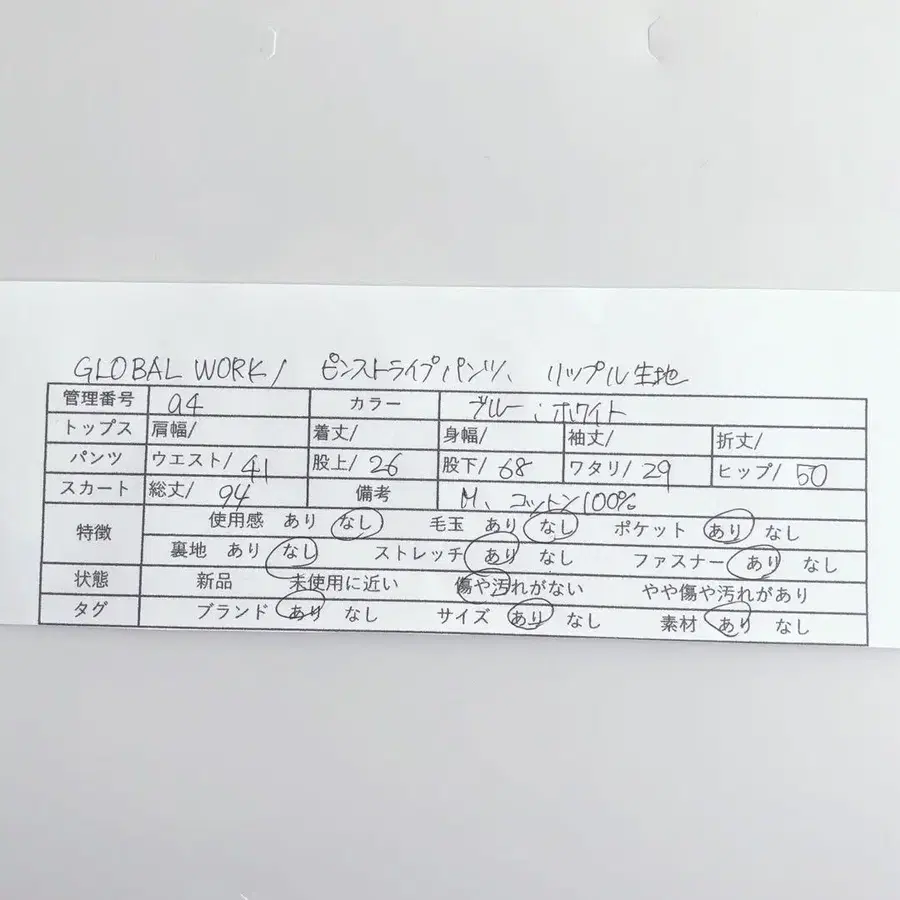 GLOBAL WORK/ ピンストライプパンツ、リップル生地
管理番号 a4 カラー ブルー:ホワイト
トップス 肩幅/ 着丈/ 身幅/ 袖丈/ 裄丈/
パンツ ウエスト/ 41 股上/26 股下/68 ワタリ/29 ヒップ/50
スカート 総丈/ 94 備考 M、コットン100%
特徴 使用感 あり なし 毛玉 あり なし ポケット あり なし
裏地 あり なし ストレッチ あり なし ファスナー あり なし
状態 新品 未使用に近い 傷や汚れがない やや傷や汚れがあり
タグ ブランド あり なし サイズ あり なし 素材 あり なし